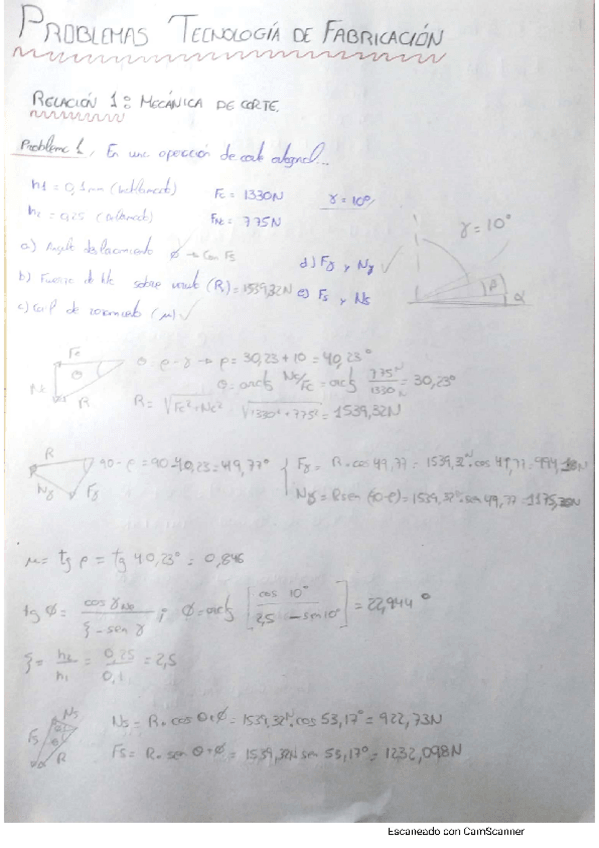 PROBLEMAS TECNOLOGÍA DE FABRICACIÓN
RELACIÓN 1: MECÁNICA DE CORTE.
Problema 1. En una operación de corte ortogonal...
h1 = 0,1mm Fc = 1330N γ = 10º
h2 = 0,25 FNc = 775N
γ = 10°
a) Ángulo deslizamiento φ → Con Fs
d) Fγ y Nγ ✓
b) Fuerza sobre viruta (R) = 1539,32N
e) Fs y Ns
c) Coef de rozamiento (μ) ✓
β α
Fc θ ρ - γ → ρ = 30,23 + 10 = 40,23°
Nc R θ = arctg Nc/Fc = arctg 775N/1330N = 30,23°
R = √Fc² + Nc² √1330² + 775² = 1539,32N
R 90 - ρ = 90 - 40,23 = 49,77° Fγ = R · cos 49,77 = 1539,32N · cos 49,77 = 994,18N
Nγ Fγ Nγ = R sen (90-ρ) = 1539,32N · sen 49,77 = 1175,20N
μ = tg ρ = tg 40,23° = 0,846
tg φ = cos γ / ξ - sen γ ; φ = arctg [cos 10° / 2,5 - sin 10°] = 22,944°
ξ = h2/h1 = 0,25/0,1 = 2,5
Ns Ns = R · cos θ+φ = 1539,32N cos 53,17° = 922,73N
Fs R Fs = R · sen θ+φ = 1539,32N sen 53,17° = 1232,098N
Escaneado con CamScanner